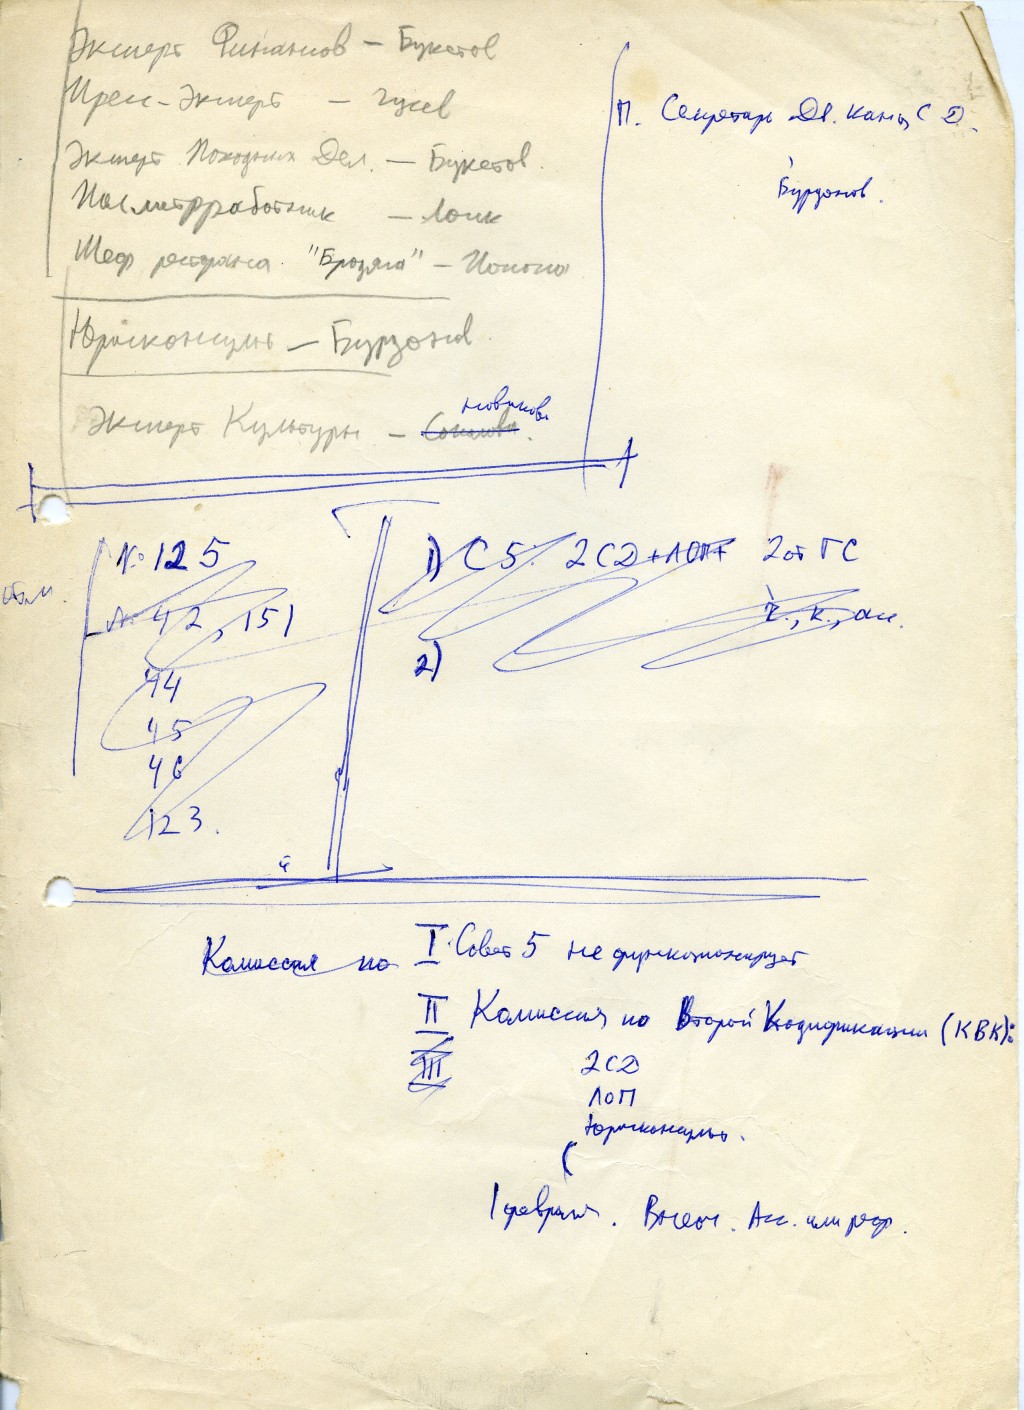 Эксперт Финансов – Букетов
Пресс-Эксперт – Гусев
Эксперт Походных Дел. – Букетов.
– Лоик
Шеф ресторана "Бродяга" –
Юрисконсульт – Бурдонов
Эксперт Культуры – Соколова.
Новикова
П. Секретарь Дв. Канц С D.
Бурдонов.
№ 125
№ 42, 151
44
45
46
123.
1) С 5. 2СD + ЛОП + 2 от ГС
2)
Комиссия по
I. Совет 5 не функционирует
II Комиссия по Второй Кодификации (КВК):
III
2СD
ЛОП
Юрисконсульт.
1 февраля. Внеоч. Асс. или реф.